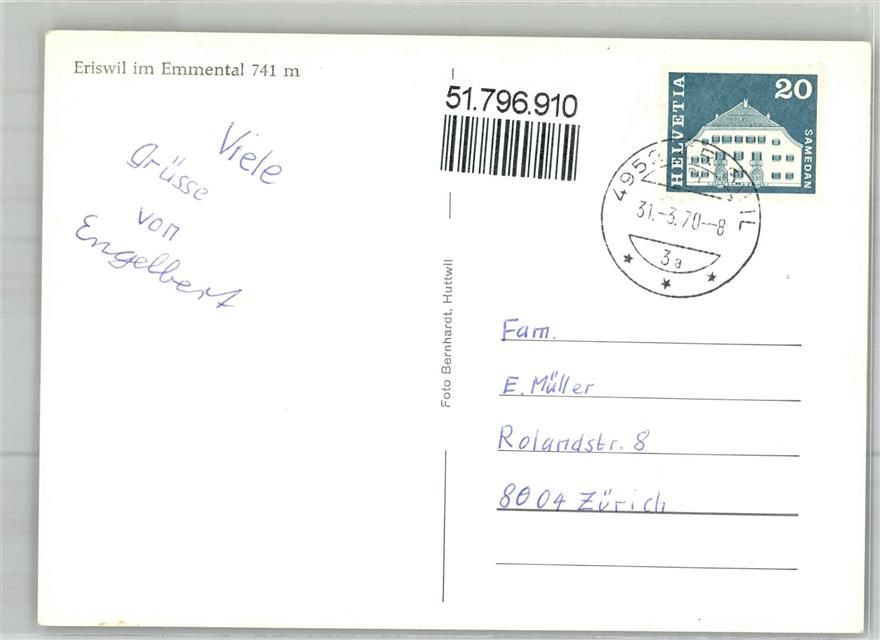 Eriswil im Emmental 741 m
Viele
Grüsse
von
Engelbert
51.796.910
HELVETIA
20
SAMEDAN
4952
31.-3.70--8
3a
Foto Bernhardt, Huttwil
Fam.
E. Müller
Rolandstr. 8
8004 Zürich